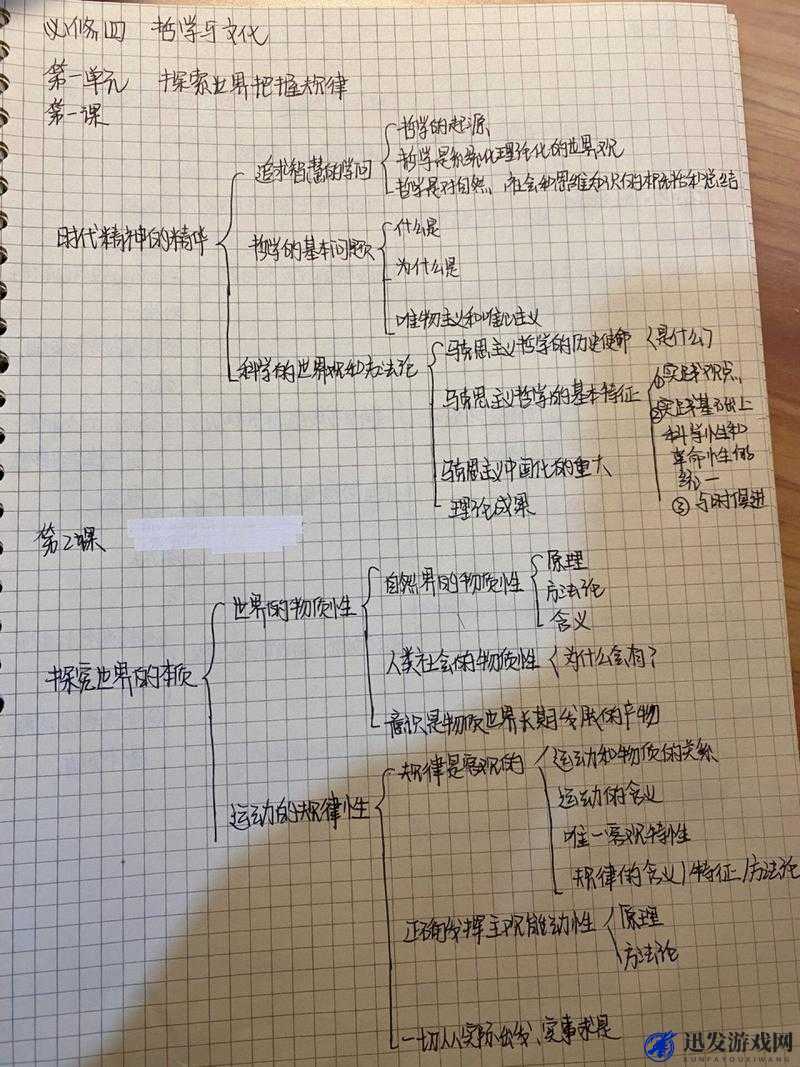 必修四 哲学与文化
第一单元 探索世界把握规律
第一课
时代精神的精华
追求智慧的学问
哲学的起源
哲学是系统化理论化的世界观
哲学是对自然、社会和思维知识的概括和总结
哲学的基本问题
什么是
为什么是
唯物主义和唯心主义
科学的世界观和方法论
马克思主义哲学的历史使命
是什么?
马克思主义哲学的基本特征
①实践观点
②实践基础上
科学性和
革命性的
统一
③与时俱进
马克思主义中国化的重大
理论成果
第二课
探究世界的本质
世界的物质性
自然界的物质性
原理
方法论
含义
人类社会的物质性
为什么会有?
意识是物质世界长期发展的产物
运动的规律性
规律是客观的
运动和物质的关系
运动的含义
唯一客观特性
规律的含义/特征/方法论
正确发挥主观能动性
原理
方法论
一切从实际出发、实事求是
迅发游戏网
XUNFAYOUXIWANG